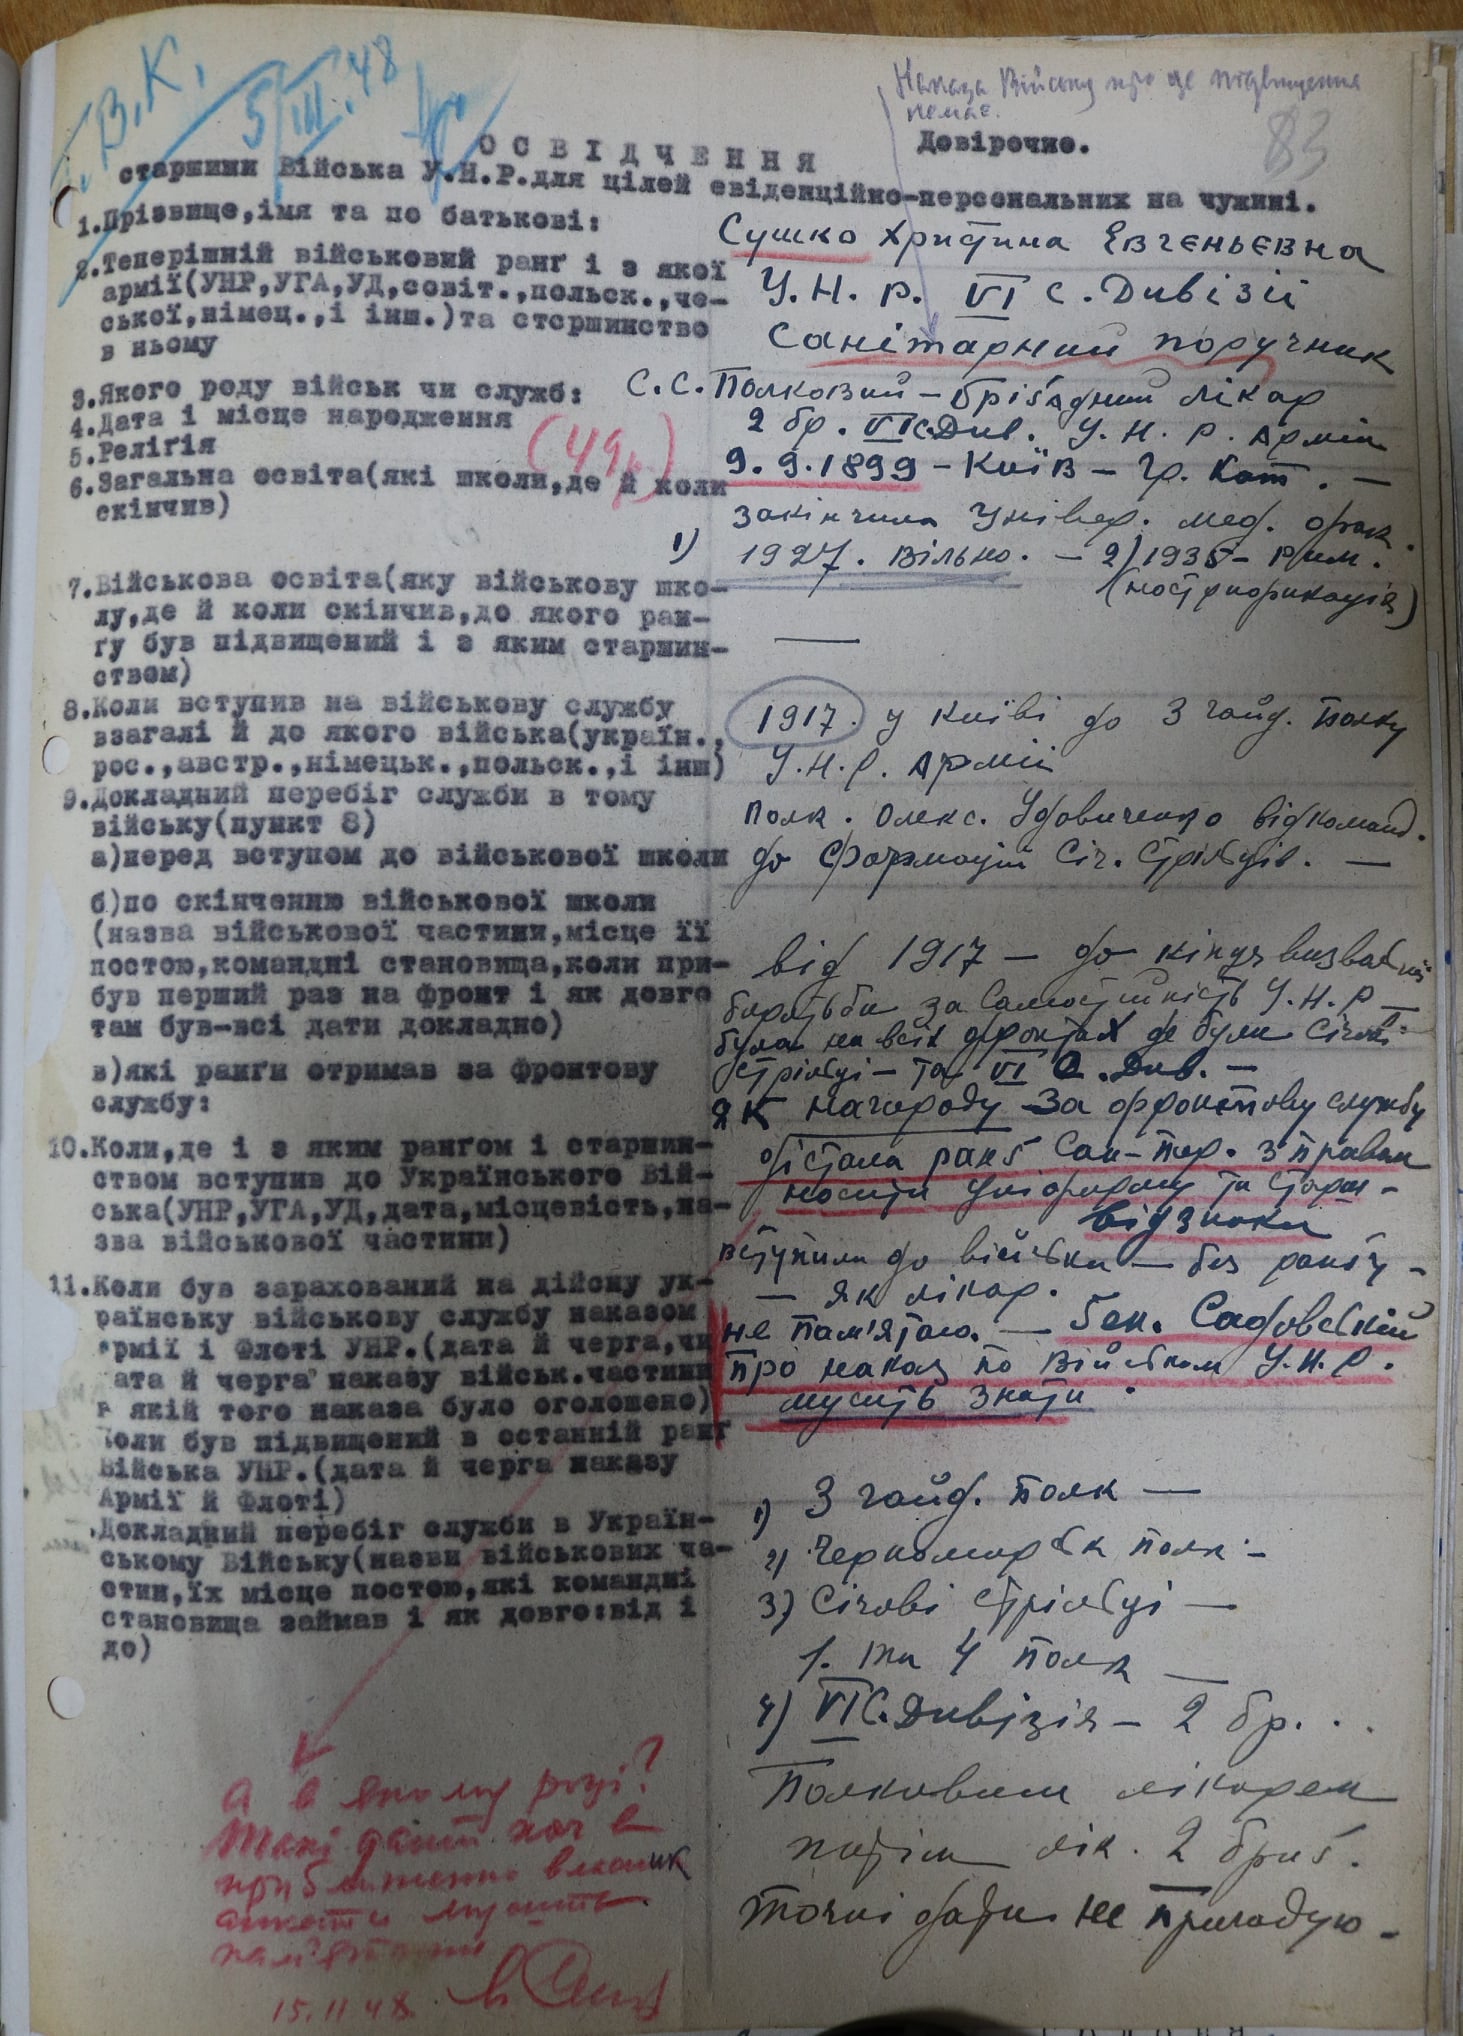 В.К.
5/III.48
Наказа Війську про це підвищення
немає.
83
Довірочно.
ОСВІДЧЕННЯ
старшини Війська У.Н.Р.для цілей евіденційно-персональних на чужині.
1.Прізвище,імя та по батькові:
Сушко Христина Євгеньєвна
2.Теперішній військовий ранґ і з якої
армії(УНР,УГА,УД,совіт.,польск.,че-
ської,німец.,і інш.)та стершинство
в ньому
У.Н.Р. VI С. Дивізії
Санітарний поручник
3.Якого роду військ чи служб:
С.С. Полковий – бріґадний лікар
2 бр. VI С.Див. У.Н.Р. Армії
4.Дата і місце народження
5.Релігія
(49р.)
9.9.1899 – Київ – Гр. Кат. –
6.Загальна освіта(які школи,де й коли
скінчив)
закінчила Універ. мед. фак.
1) 1927. Вільно. – 2) 1935 – Рим.
(нострифікація)
7.Військова освіта(яку військову шко-
лу,де й коли скінчив,до якого ран-
ґу був підвищений і з яким старшин-
ством)
—
8.Коли вступив на військову службу
взагалі й до якого війська(україн.,
рос.,австр.,німецьк.,польск.,і інш)
1917. у Київі до 3 гайд. Полку
У.Н.Р. Армії
9.Докладний перебіг служби в тому
війську(пункт 8)
а)перед вступом до військової школи
Полк. Олекс. Удовиченко відкоманд.
до Формації Січ. Стрільців. —
б)по скінченню військової школи
(назва військової частини,місце її
постою,командні становища,коли при-
був перший раз на фронт і як довго
там був-всі дати докладно)
від 1917 – до кінця визвольної
боротьби за Самостійність У.Н.Р –
була на всіх фронтах де були Січові
Стрільці – та VI С. Див. –
в)які ранґи отримав за фронтову
службу:
як нагороду за фронтову службу
дістала ранґ Сан-Пор. з правом
носити уніформу та старш-
відзнаки
10.Коли,де і з яким ранґом і старшин-
ством вступив до Українського Вій-
ська(УНР,УГА,УД,дата,місцевість,на-
зва військової частини)
вступила до війська – без ранґу –
– як лікар.
11.Коли був зарахований на дійсну ук-
раїнську військову службу наказом
рмії і Флоті УНР.(дата й черга,чи
ата й черга наказу військ.частини
в якій того наказа було оголошено)
не пам'ятаю. – Ген. Садовський
про наказ по Військом У.Н.Р.
мусить знати.
оли був підвищений в останній ранґ
Війська УНР.(дата й черга наказу
Армії й Флоті)
.Докладний перебіг служби в Україн-
ському Війську(назви військових ча-
стин,їх місце постою,які командні
становища займав і як довго:від і
до)
1) 3 гайд. Полк —
2) Черноморськ полк –
3) Січові Стрільці —
1. та 4 полк —
4) VI С.Дивізія – 2 бр. . .
Полковим лікарем
потім лік. 2 бриґ.
точні дати не пригадую –
А в якому році?
Такі дати хоч в
приближенно
мусить
памятати
15.II 48.